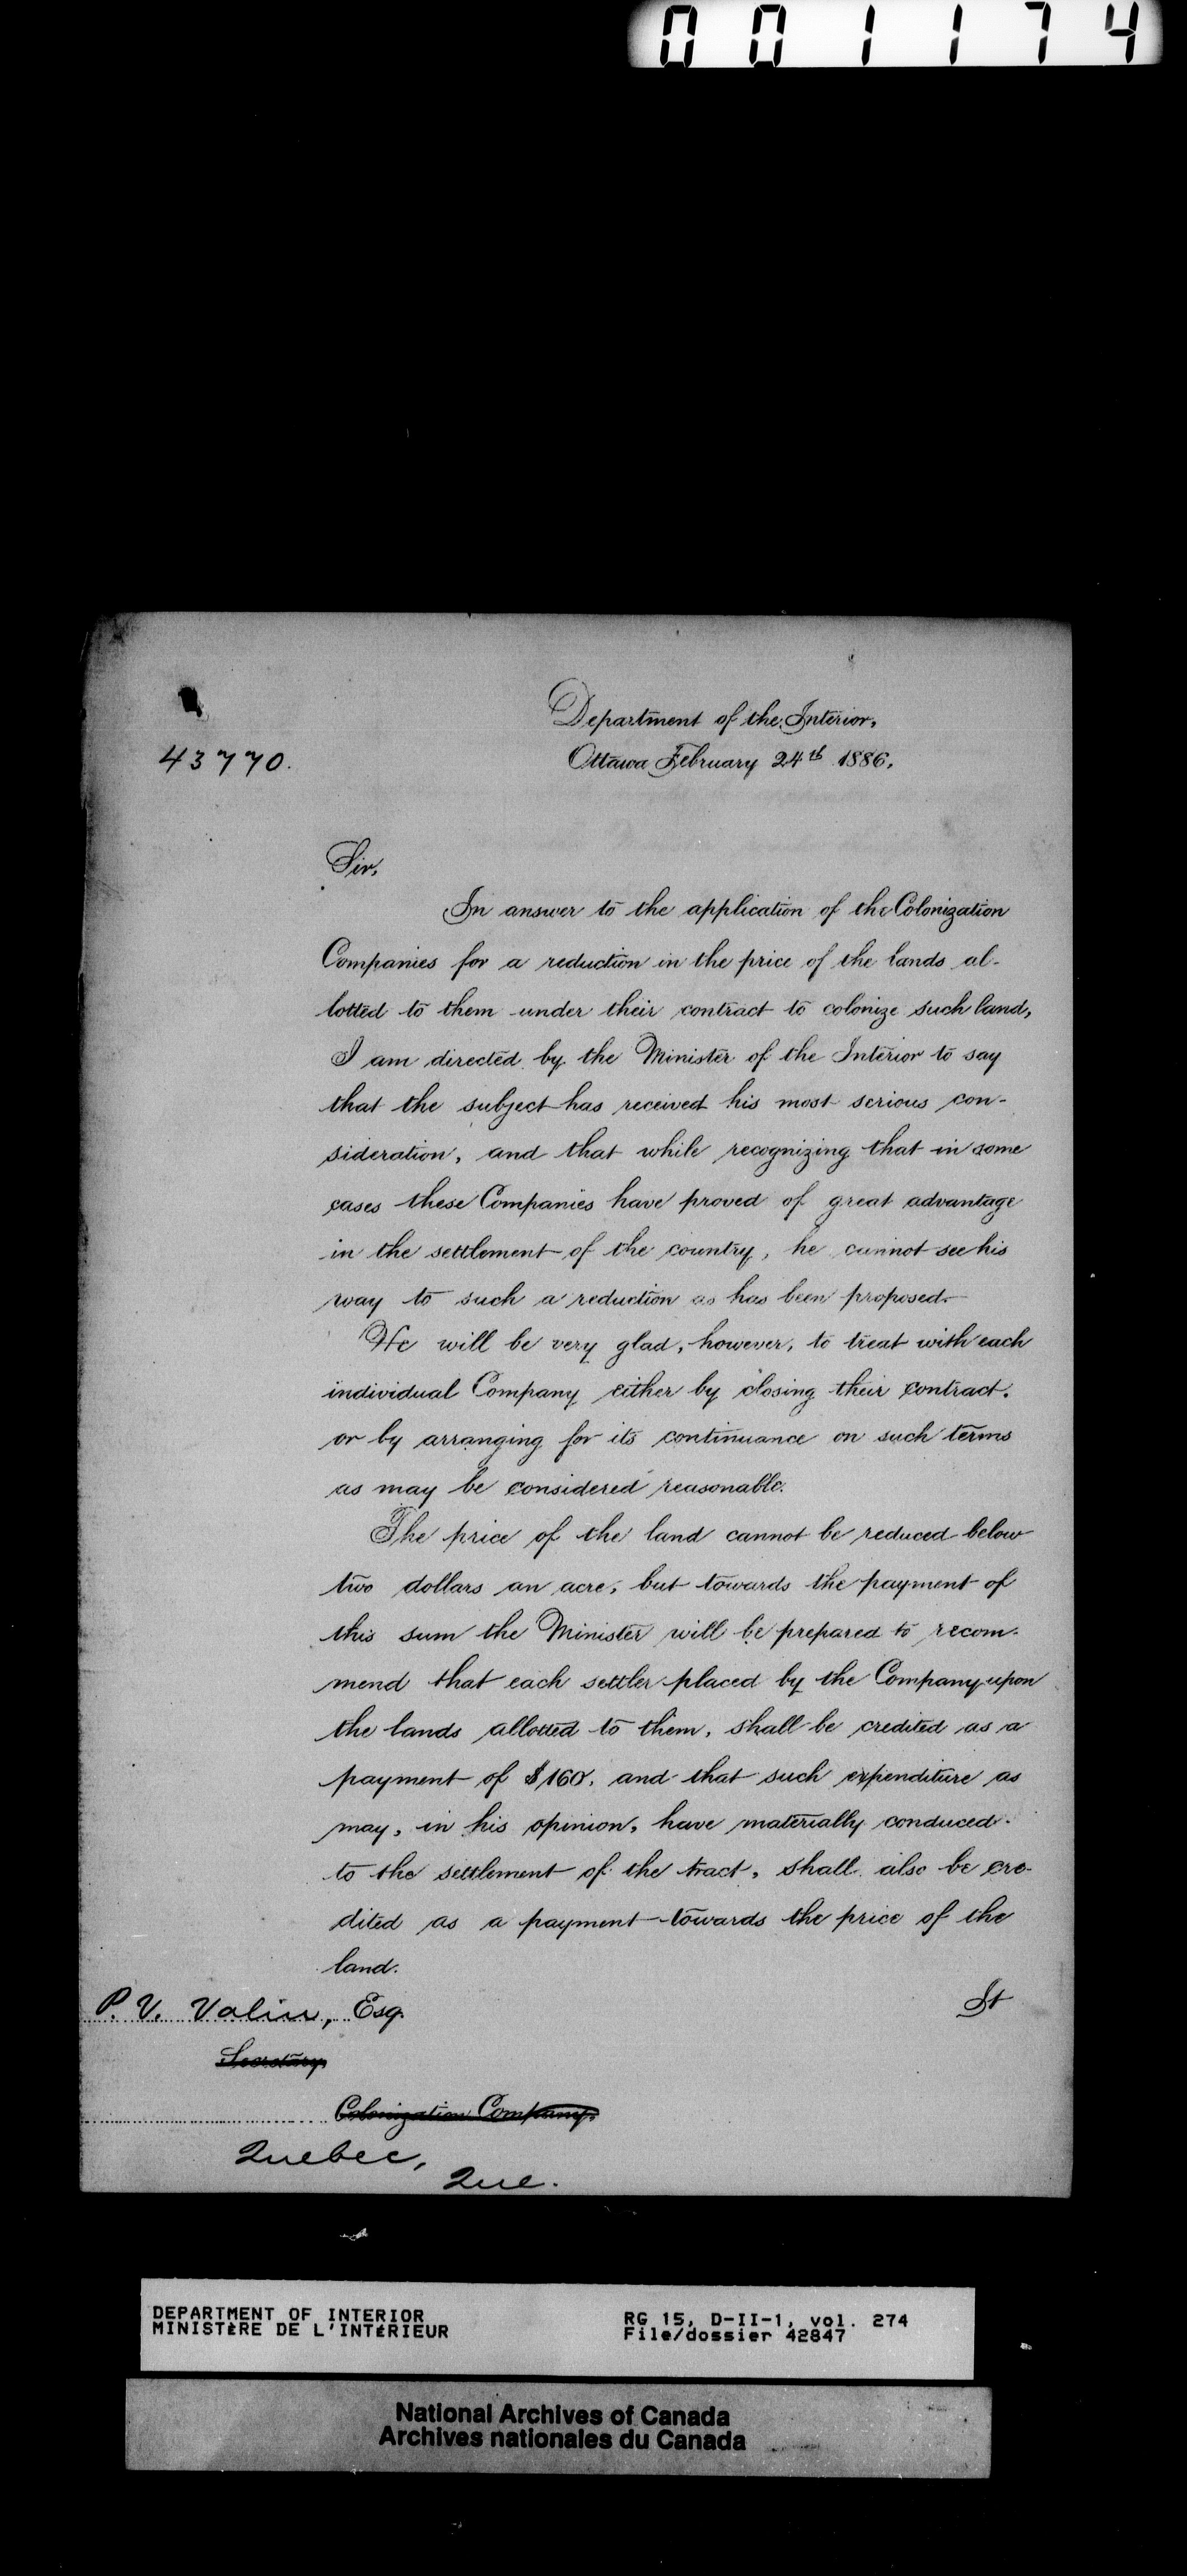 001174
Department of the Interior,
43770.
Ottawa February 24th 1886,
Sir,
In answer to the application of the Colonization
Companies for a reduction in the price of the lands al-
lotted to them under their contract to colonize such land,
I am directed by the Minister of the Interior to say
that the subject has received his most serious con-
sideration, and that while recognizing that in some
cases these Companies have proved of great advantage
in the settlement of the country, he cannot see his
way to such a reduction as has been proposed.
He will be very glad, however, to treat with each
individual Company either by closing their contract,
or by arranging for its continuance on such terms
as may be considered reasonable.
The price of the land cannot be reduced below
two dollars an acre, but towards the payment of
this sum the Minister will be prepared to recom-
mend that each settler placed by the Company upon
the lands allotted to them, shall be credited as a
payment of $160, and that such expenditure as
may, in his opinion, have materially conduced
to the settlement of the tract, shall also be cre-
dited as a payment towards the price of the
land.
P. V. Valin, Esq.
It
Secretary
Colonization Company.
Quebec,
Que.
DEPARTMENT OF INTERIOR
MINISTÈRE DE L'INTÉRIEUR
RG 15, D-II-1, vol. 274
File/dossier 42847
National Archives of Canada
Archives nationales du Canada